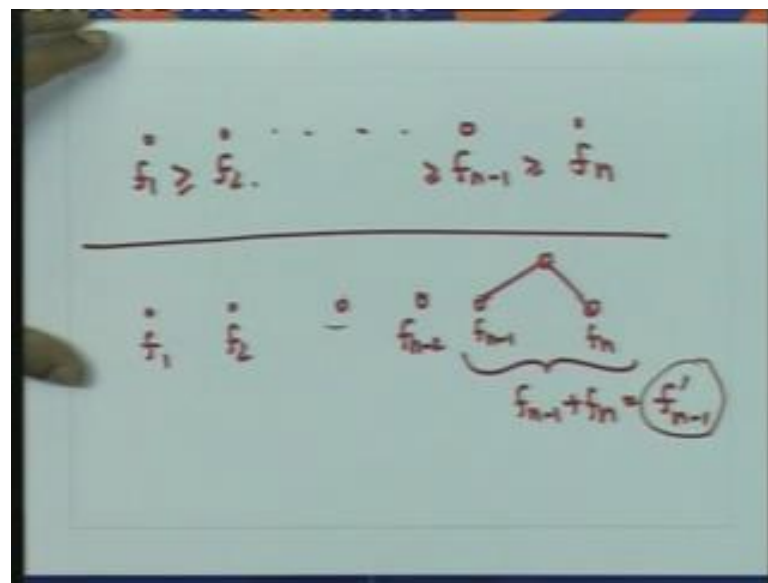 f₁ ≥ f₂ . - - - - ≥ fₙ₋₁ ≥ fₙ
f₁ f₂ - fₙ₋₂ fₙ₋₁ fₙ
fₙ₋₁ + fₙ = f'ₙ₋₁